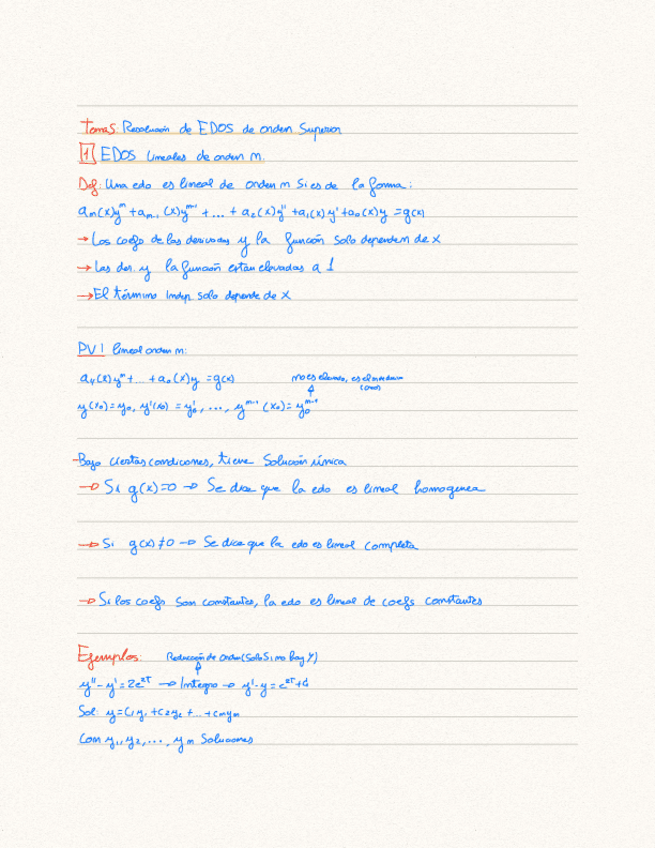 Tema 5: Resolución de EDOS de orden Superior
1 EDOS Lineales de orden n.
Def: Una edo es lineal de orden n si es de la forma:
aₙ(x)yⁿ + aₙ₋₁(x)yⁿ⁻¹ + ... + a₂(x)y'' + a₁(x)y' + a₀(x)y = g(x)
→ Los coefs de las derivadas y la función solo dependen de x
→ Las der. y la función están elevadas a 1
→ El término indep. solo depende de x
PVI lineal orden n:
aₙ(x)yⁿ + ... + a₀(x)y = g(x) no es elevado, es el
y(x₀)=y₀, y'(x₀)=y'₀, ..., yⁿ⁻¹(x₀)=y₀ⁿ⁻¹
Bajo ciertas condiciones, tiene solución única
→ Si g(x)=0 → Se dice que la edo es lineal homogenea
→ Si g(x)≠0 → Se dice que la edo es lineal completa
→ Si los coefs son constantes, la edo es lineal de coefs constantes
Ejemplos: Reducción de orden (Solo si no hay y)
y''-y'=2e²ᵀ → Integro → y'-y=e²ᵀ+d
Sol: y=C₁y₁+C₂y₂+...+Cₙyₙ
Con y₁, y₂, ..., yₙ Soluciones